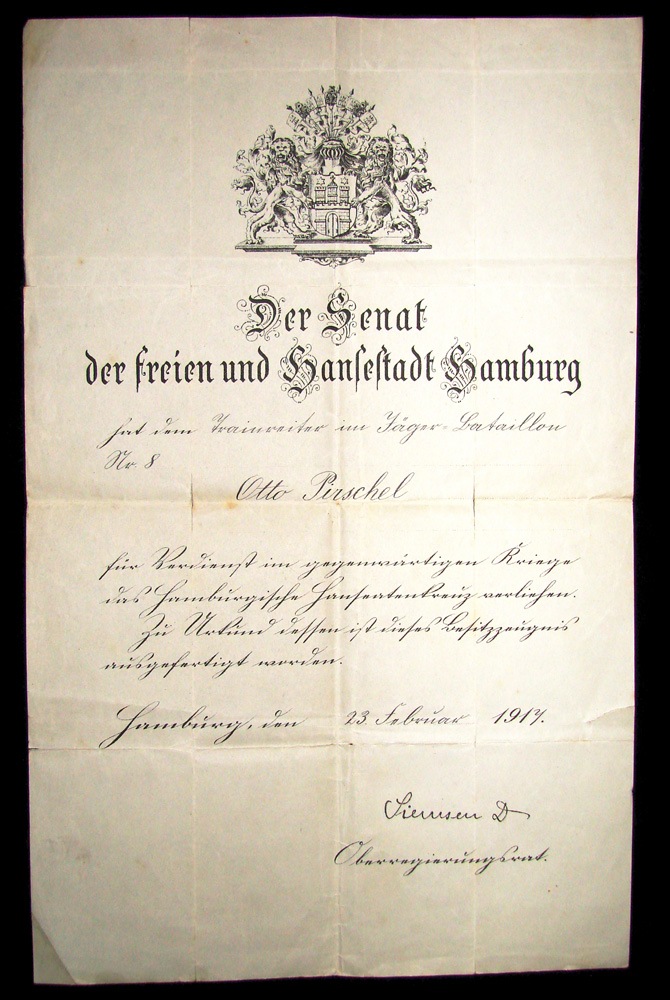 Der Senat
der freien und Hansestadt Hamburg
hat dem Trainreiter im Jäger-Bataillon
Nr. 8
Otto Pirschel
für Verdienst im gegenwärtigen Kriege
das Hamburgische Hanseatenkreuz verliehen.
Zu Urkund dessen ist dieses Besitzzeugnis
ausgefertigt worden.
Hamburg, den 23. Februar 1917.
Siemsen D
Oberregierungsrat.